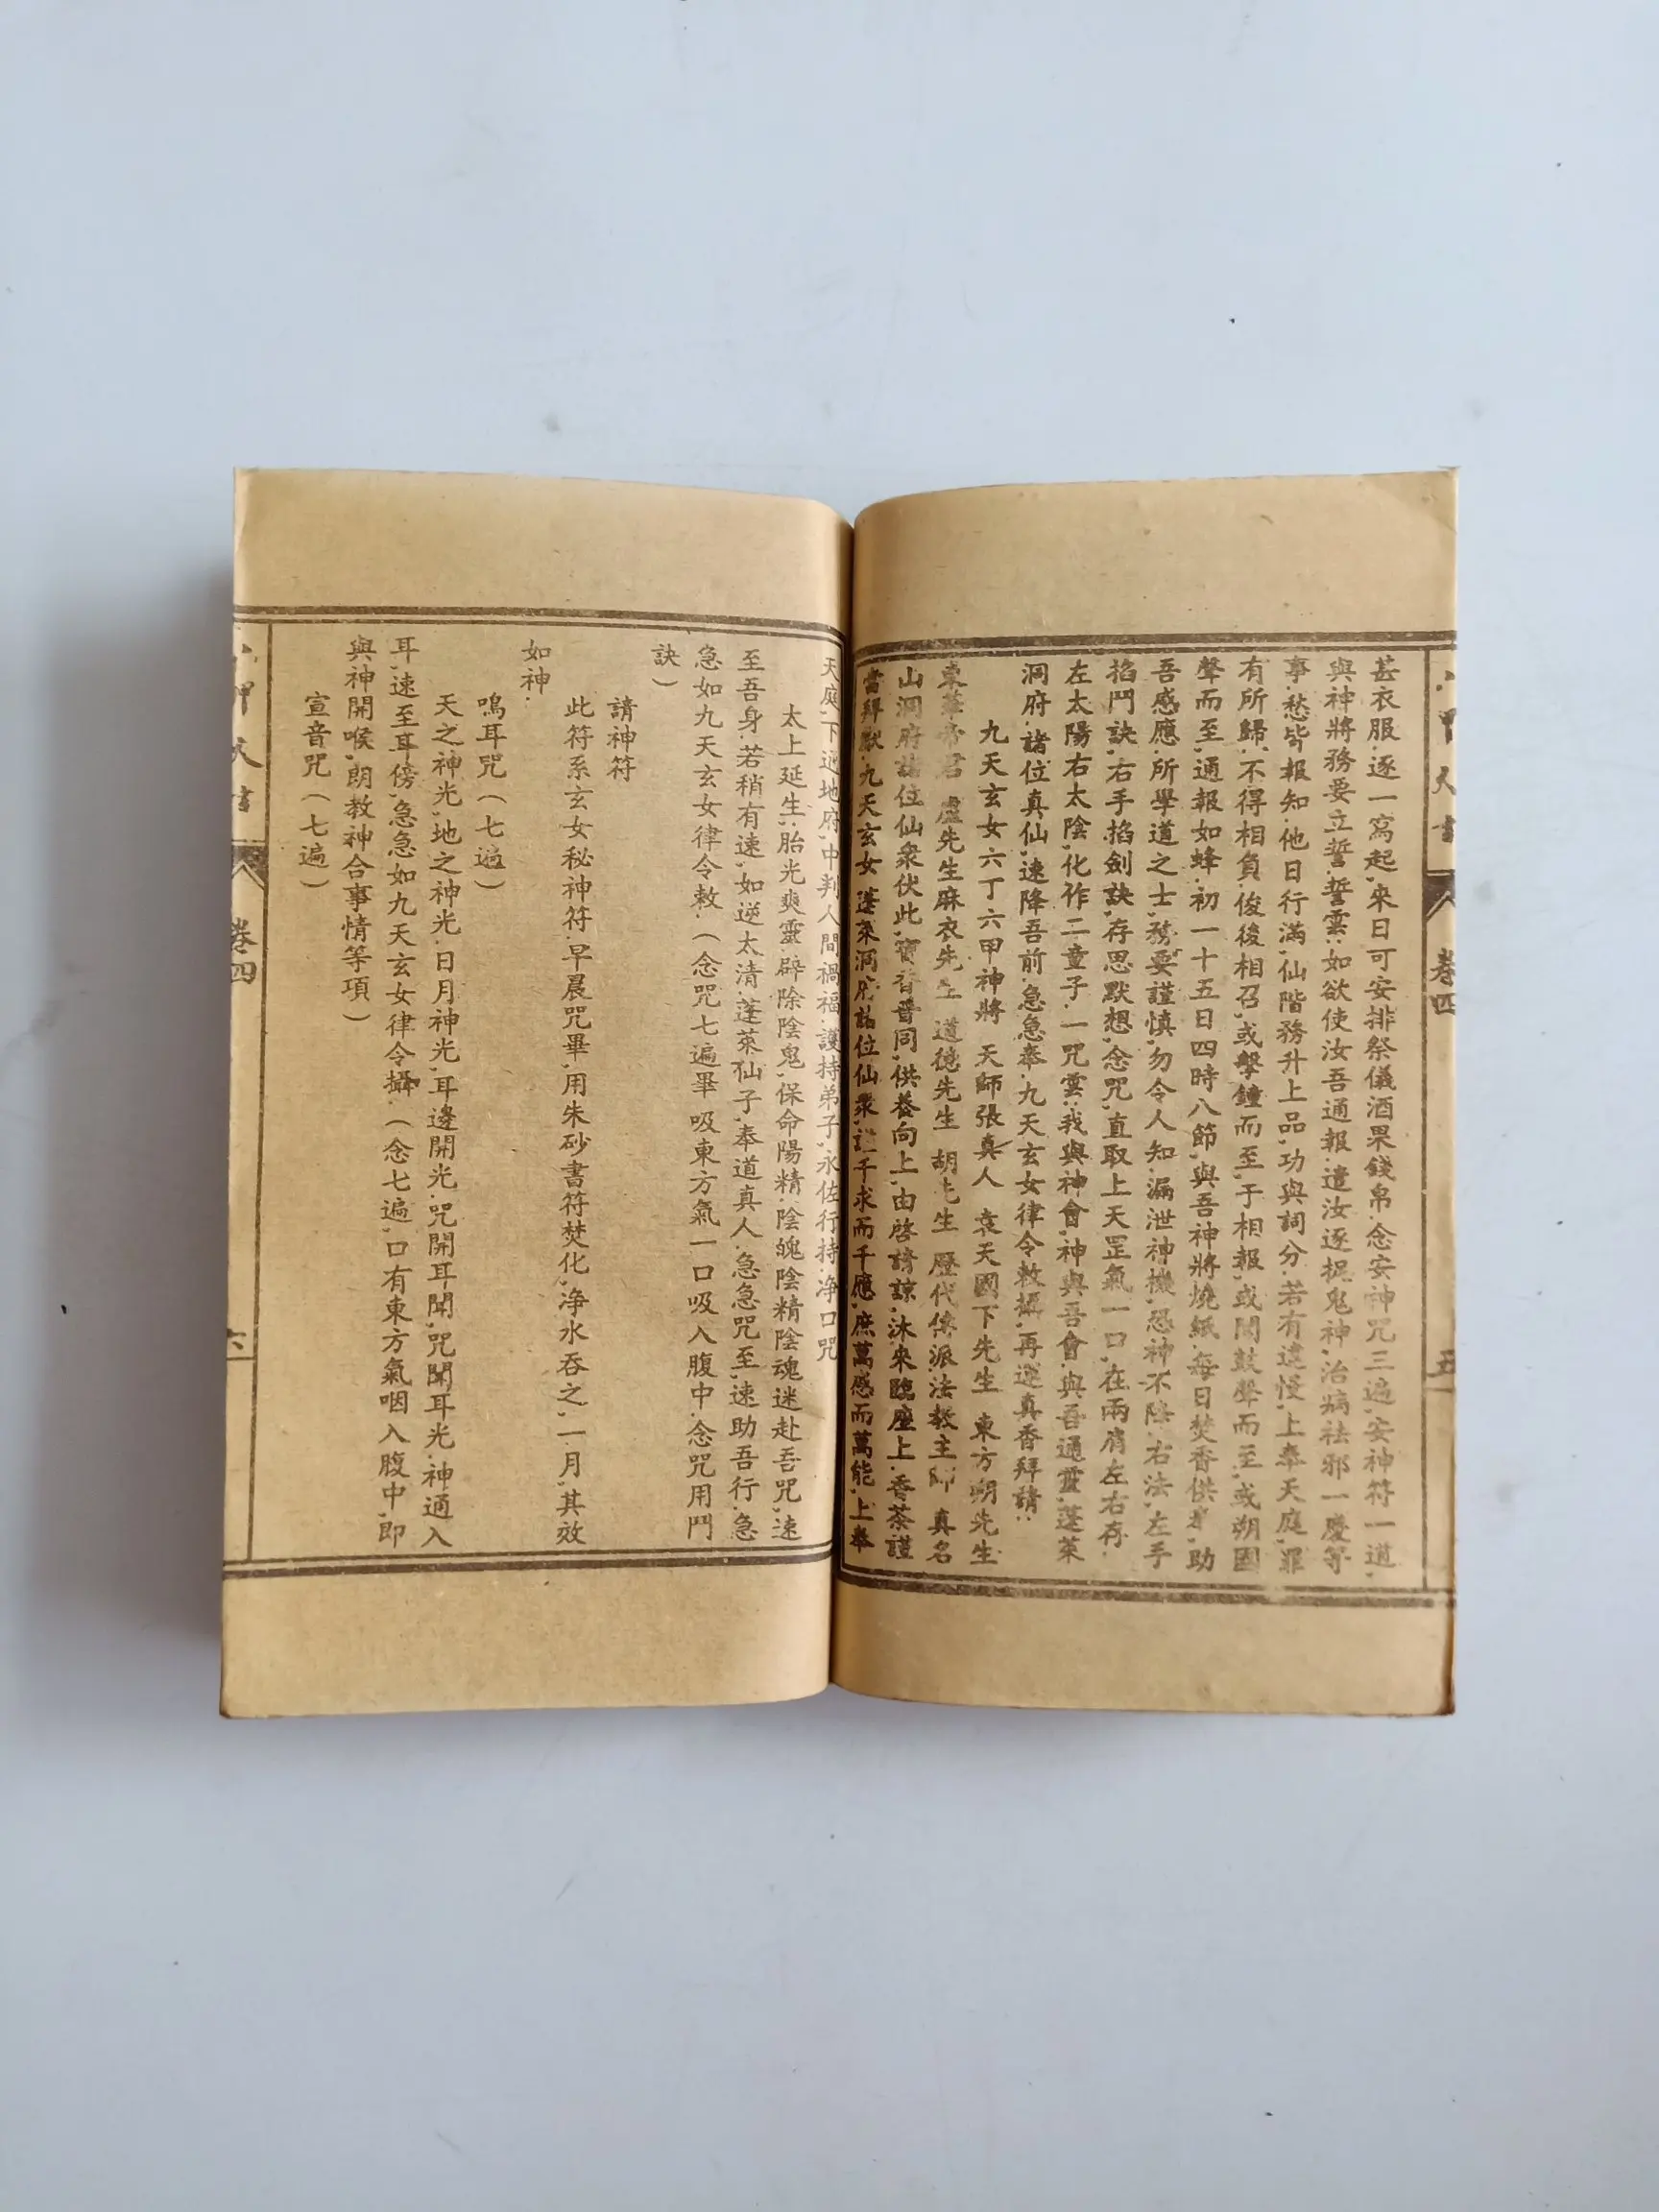 甚衣服,逐一寫起,來日可安排祭儀酒果錢帛,念安神咒三遍,安神符一道,
與神將務要立誓,誓雲:如欲使汝吾通報,遣汝逐捉鬼神,治病祛邪一慶等
事,愁皆報知,他日行滿,仙階務升上品,功與詞分,若有違慢,上奉天庭,罪
有所歸,不得相負,後後相召,或擊鐘而至,于相報,或聞鼓聲而至,或朔國
聲而至,通報如蜂,初一十五日四時八節,與吾神將燒紙,每日焚香供,助
吾感應,所學道之士,務要謹慎,勿令人知,漏泄神機,恐神不降,右法,左手
掐鬥訣,右手掐劍訣,存思默想,念咒,直取上天罡氣一口,在兩肩左右存,
左太陽右太陰,化作二童子,一咒雲:我與神會,神與吾會,與吾通靈,蓬萊
洞府,諸位真仙,速降吾前,急急奉,九天玄女律令敕攝,再遂真香拜請:
九天玄女六丁六甲神將 天師張真人 袁天國下先生 東方朔先生
東華帝君 虛先生麻衣先生 道德先生 胡先生 歷代傳派法教主師 真名
山洞府諸位仙衆伏此,寶香普同,供養向上,由啓請諒,沐來臨座上,香茶謹
當拜獻,九天玄女 蓬萊洞府諸位仙衆,千求而千應,庶萬感而萬能,上奉
六甲天書 卷四 五
天庭,下巡地府,中判人間禍福,護持弟子,永佐行持,净口咒
太上延生,胎光爽靈,辟除陰鬼,保命陽精,陰魄陰精陰魂迷赴吾咒,速
至吾身,若稍有速,如逆太清,蓬萊仙子,奉道真人,急急咒至,速助吾行,急
急如九天玄女律令敕,(念咒七遍畢,吸東方氣一口吸入腹中,念咒用鬥
訣)
請神符
此符系玄女秘神符,早晨咒畢,用朱砂書符焚化,净水吞之,一月,其效
如神,
鳴耳咒(七遍)
天之神光,地之神光,日月神光,耳邊開光,咒開耳聞,咒聞耳光,神通入
耳,速至耳傍,急急如九天玄女律令攝,(念七遍,口有東方氣咽入腹中,即
與神開喉,朗教神合事情等項)
宣音咒(七遍)
六甲天書 卷四 六